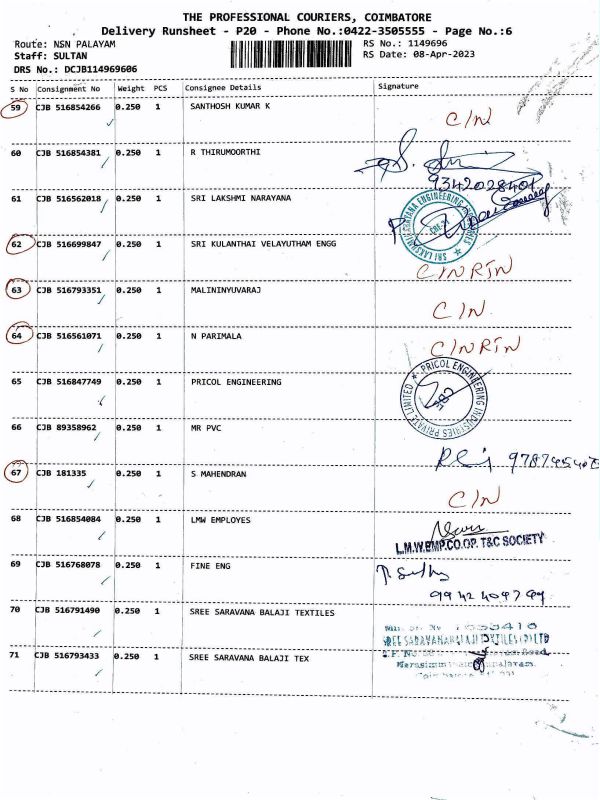 THE PROFESSIONAL COURIERS, COIMBATORE
Delivery Runsheet - P20 - Phone No.:0422-3505555 - Page No.:6
Route: NSN PALAYAM
RS No.: 1149696
Staff: SULTAN
RS Date: 08-Apr-2023
DRS No.: DCJB114969606
S No Consignment No Weight PCS Consignee Details Signature
59 CJB 516854266 0.250 1 SANTHOSH KUMAR K C/N
60 CJB 516854381 0.250 1 R THIRUMOORTHI
9342028401
61 CJB 516562018 0.250 1 SRI LAKSHMI NARAYANA
62 CJB 516699847 0.250 1 SRI KULANTHAI VELAYUTHAM ENGG
C/NRTN
63 CJB 516793351 0.250 1 MALININYUVARAJ
C/N
64 CJB 516561071 0.250 1 N PARIMALA C/NRTN
65 CJB 516847749 0.250 1 PRICOL ENGINEERING
PRICOL ENGINEERING INDUSTRIES PRIVATE LIMITED
66 CJB 89358962 0.250 1 MR PVC
67 CJB 181335 0.250 1 S MAHENDRAN
C/N
68 CJB 516854084 0.250 1 LMW EMPLOYES
L.M.W.EMP.CO.OP. T&C SOCIETY
69 CJB 516768078 0.250 1 FINE ENG
70 CJB 516791490 0.250 1 SREE SARAVANA BALAJI TEXTILES
71 CJB 516793433 0.250 1 SREE SARAVANA BALAJI TEX